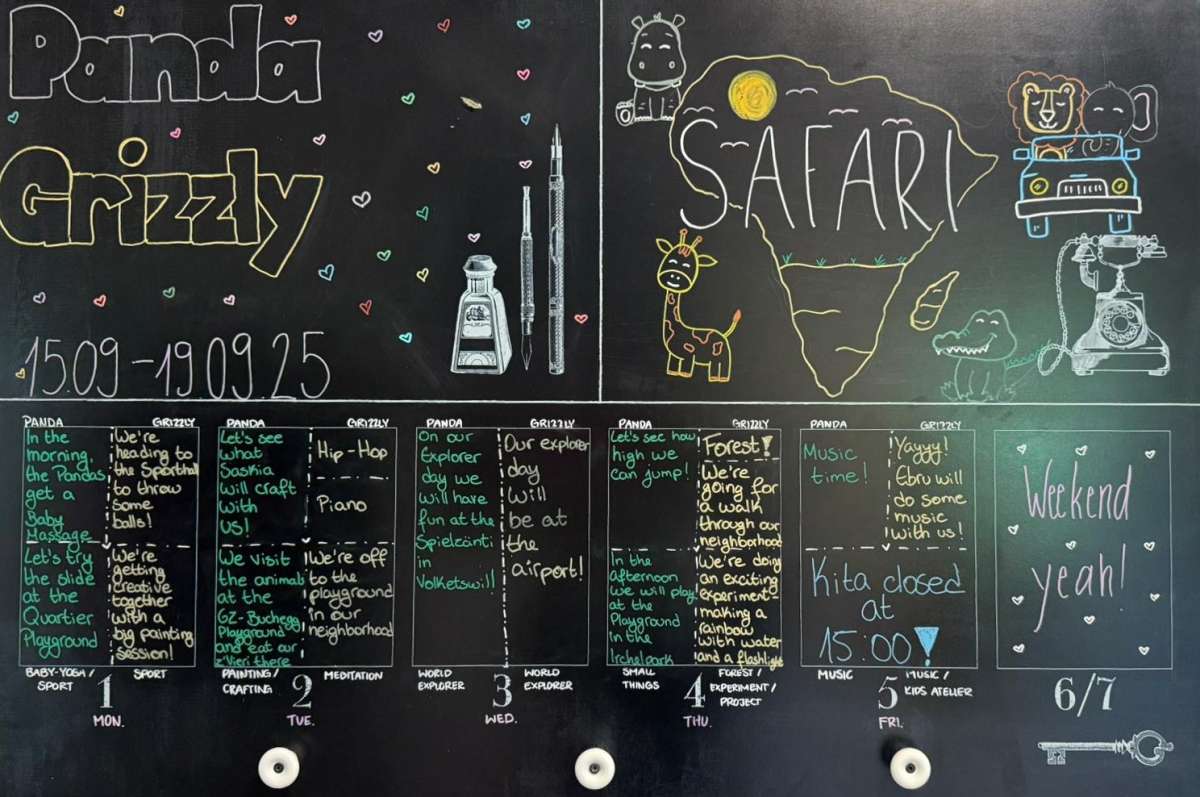 Panda
Grizzly
15.09 - 19.09.25
SAFARI
PANDA
GRIZZLY
In the
morning,
the Pandas
get a
Baby
Massage
We're
heading to
the Sporthall
to throw
some
balls!
Let's try
the slide
at the
Quartier
Playground
We're
getting
creative
together
with a
big painting
session!
BABY-YOGA /
SPORT
SPORT
1
MON.
PANDA
GRIZZLY
Let's see
what
Saskia
will craft
with
us!
Hip-Hop
Piano
We visit
the animals
at the
GZ-Buchegg
Playground
and eat our
z'Vieri there
We're off
to the
playground
in our
neighborhood
PAINTING /
CRAFTING
MEDITATION
2
TUE.
PANDA
GRIZZLY
On our
Explorer
day we
will have
fun at the
Spielzänti
in
Volketswil!
Our explorer
day
will
be at
the
airport!
WORLD
EXPLORER
WORLD
EXPLORER
3
WED.
PANDA
GRIZZLY
Let's see how
high we
can jump!
Forest!
We're
going for
a walk
through our
neighborhood
In the
afternoon
we will play
at the
Playground
in the
Irchelpark
We're doing
an exciting
experiment-
making a
rainbow
with water
and a flashlight
SMALL
THINGS
FOREST /
EXPERIMENT /
PROJECT
4
THU.
PANDA
GRIZZLY
Music
time!
Yayyy!
Ebru will
do some
music
with us!
Kita closed
at
15:00!
MUSIC
MUSIC /
KIDS ATELIER
5
FRI.
Weekend
yeah!
6/7